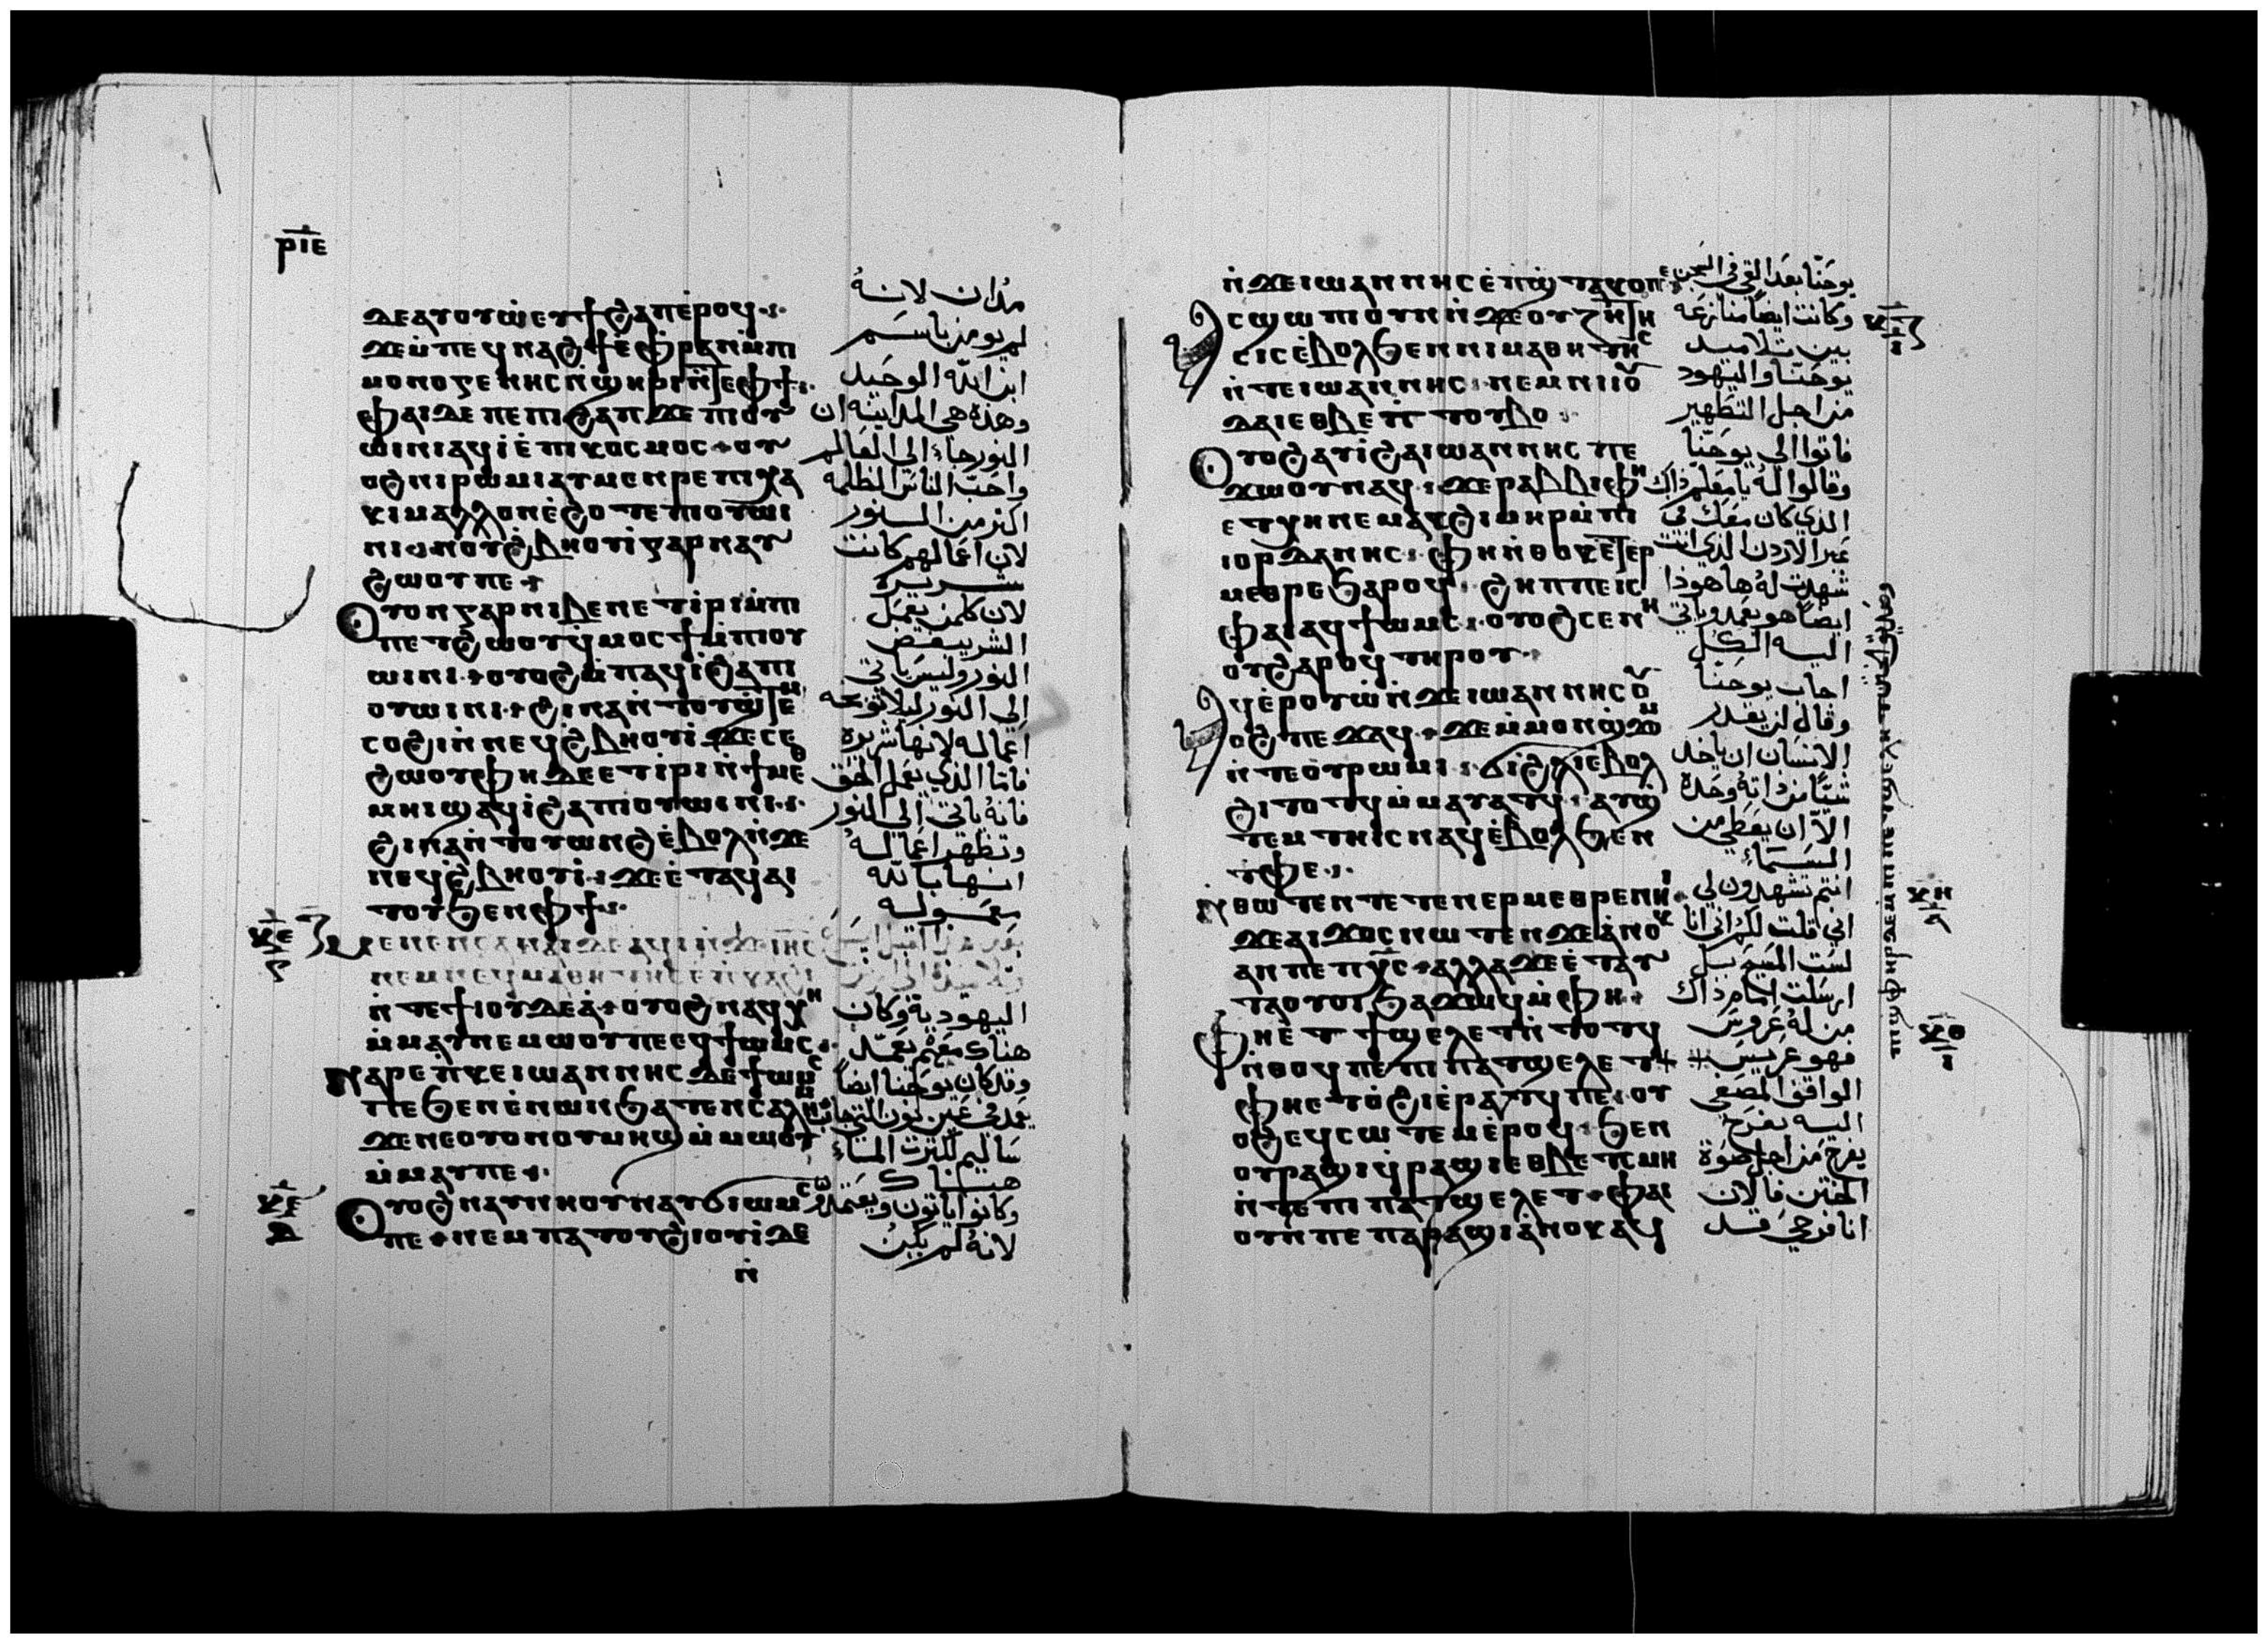 ⲣⲓⲉ
ϫⲉ ⲁⲩⲟⲩⲱ ⲉⲩϯϩⲁⲡ ⲉⲣⲟϥ
ϫⲉ ⲙ̀ⲡⲉϥⲛⲁϩϯ ⲉ̀ⲫⲣⲁⲛ ⲙ̀ⲡⲓ
ⲙⲟⲛⲟⲅⲉⲛⲏⲥ ⲛ̀ϣⲏⲣⲓ ⲛ̀ⲧⲉ ⲫϯ
ⲫⲁⲓ ⲇⲉ ⲡⲉ ⲡⲓϩⲁⲡ ϫⲉ ⲡⲓⲟⲩ
ⲱⲓⲛⲓ ⲁϥⲓ̀ ⲉ̀ⲡⲓⲕⲟⲥⲙⲟⲥ ⲟⲩ
ⲟϩ ⲛⲓⲣⲱⲙⲓ ⲁⲩⲙⲉⲛⲣⲉ ⲡⲓⲭⲁ
ⲕⲓ ⲙⲁⲗⲗⲟⲛ ⲉ̀ϩⲟⲧⲉ ⲡⲓⲟⲩⲱⲓ
ϩⲱⲟⲩ ⲡⲉ
Ⲟⲩⲟⲛ ⲅⲁⲣ ⲛⲓⲃⲉⲛ ⲉⲧⲓⲣⲓ ⲙ̀ⲡⲓ
ⲡⲉⲧϩⲱⲟⲩ ϥⲙⲟⲥϯ ⲙ̀ⲡⲓⲟⲩ
ⲱⲓⲛⲓ ⲟⲩⲟϩ ⲙ̀ⲡⲁϥⲓ̀ ϩⲁ ⲡⲓ
ⲥⲟϩⲓ ⲛ̀ⲛⲉϥϩ̀ⲃⲏⲟⲩⲓ̀ ϫⲉ ⲥⲉ
ϩⲱⲟⲩ ⲫⲏ ⲇⲉ ⲉⲧⲓⲣⲓ ⲛ̀ϯⲙⲉⲑ
ⲙⲏⲓ ϣⲁϥⲓ̀ ϩⲁ ⲡⲓⲟⲩⲱⲓⲛⲓ
ϩⲓⲛⲁ ⲛ̀ⲧⲟⲩⲱⲛϩ ⲉ̀ⲃⲟⲗ ⲛ̀ϫⲉ
ⲛⲉϥϩ̀ⲃⲏⲟⲩⲓ̀ ϫⲉ ⲉ̀ⲧⲁϥⲁⲓ
ⲧⲟⲩ ϧⲉⲛ ⲫϯ
ⲙⲉⲛⲉⲛⲥⲁ ⲛⲁⲓ ⲇⲉ ⲁϥⲓ̀ ⲛ̀ϫⲉ ⲓⲏⲥ
ⲛⲉⲙ ⲛⲉϥⲙⲁⲑⲏⲧⲏⲥ ⲉ̀ⲡⲕⲁϩⲓ
ⲛ̀ⲧⲉ ϯⲓⲟⲩⲇⲉⲁ̀ ⲟⲩⲟϩ ⲛⲁϥⲭⲏ
ⲙ̀ⲙⲁⲩ ⲛⲉⲙⲱⲟⲩ ⲡⲉ ⲉϥϯⲱⲙⲥ
ⲛⲁⲣⲉ ⲡ̀ⲕⲉⲓⲱⲁⲛⲛⲏⲥ ⲇⲉ ϯⲱⲙⲥ
ⲡⲉ ϧⲉⲛ ⲉ̀ⲛⲱⲛ ϧⲁⲧⲉⲛ ⲥⲁⲗⲏⲙ
ϫⲉ ⲛⲉ ⲟⲩⲟⲛ ⲟⲩⲙⲏϣ ⲙ̀ⲙⲱⲟⲩ
ⲙ̀ⲙⲁⲩ ⲡⲉ
Ⲟⲩⲟϩ ⲛⲁⲩⲛⲏⲟⲩ ⲛⲁⲩϭⲓⲱⲙⲥ
ⲡⲉ ⲛⲉⲙⲡⲁⲧⲟⲩϩⲓⲟⲩⲓ̀ ⲇⲉ
ⲛ̀
يدان لانه
لم يومن باسم
ابن الله الوحيد
وهذه هي المداينه ان
النور جاء الى العالم
واحب الناس الظلمه
اكثر من النور
لان اعمالهم كانت
شريره
لان كلمن يعمل
الشر يبغض
النور وليس ياتي
الى النور ليلا توبخه
اعماله لانها شريرة
فاما الذي يعمل الحق
فانه ياتي الى النور
وتظهر اعماله
انها بالله
معموله
اليهودية وكان
هناك معهم يعمد
وقد كان يوحنا ايضا
يعمد في عين نون التي بجانب
ساليم لكثرت الماء
هناك
وكانوا ياتون ويعتمدون
لانه لم يكن
ⲛ̀ϫⲉ ⲓⲱⲁⲛⲛⲏⲥ ⲉ̀ⲡϣ̀ⲧⲉⲕⲟ ⲡⲉ
ⲥϣⲱⲡⲓ ⲟⲩⲛ ⲛ̀ϫⲉ ⲟⲩⲍⲏⲧⲏ
ⲥⲓⲥ ⲉ̀ⲃⲟⲗ ϧⲉⲛ ⲛⲓⲙⲁⲑⲏⲧⲏⲥ
ⲛ̀ⲧⲉ ⲓⲱⲁⲛⲛⲏⲥ ⲛⲉⲙ ⲛⲓⲓⲟⲩ
ⲇⲁⲓ ⲉⲑⲃⲉ ⲡ̀ⲧⲟⲩⲃⲟ
Ⲟⲩⲟϩ ⲁⲩⲓ̀ ϩⲁ ⲓⲱⲁⲛⲛⲏⲥ ⲡⲉ
ϫⲱⲟⲩ ⲛⲁϥ ϫⲉ ⲣⲁⲃⲃⲓ ⲫⲏ
ⲉⲧⲭⲏ ⲛⲉⲙⲁⲕ ϩⲓⲙⲏⲣ ⲙ̀ⲡⲓ
ⲓⲟⲣⲇⲁⲛⲏⲥ ⲫⲏ ⲛ̀ⲑⲟⲕ ⲉⲧⲉⲣ
ⲙⲉⲑⲣⲉ ϧⲁⲣⲟϥ ϩⲏⲡⲡⲉ ⲓⲥ
ⲫⲁⲓ ⲁϥϯⲱⲙⲥ ⲟⲩⲟϩ ⲥⲉⲛⲏ
ⲟⲩ ϩⲁⲣⲟϥ ⲧⲏⲣⲟⲩ
ϥⲉ̀ⲣⲟⲩⲱ̀ ⲛ̀ϫⲉ ⲓⲱⲁⲛⲛⲏⲥ ⲟⲩ
ⲟϩ ⲡⲉϫⲁϥ ϫⲉ ⲙ̀ⲙⲟⲛ ϣ̀ϫⲟⲙ
ⲛ̀ⲧⲉ ⲟⲩⲣⲱⲙⲓ ϭⲓ ϩ̀ⲗⲓ ⲉ̀ⲃⲟⲗ
ϩⲓⲧⲟⲧϥ ⲙ̀ⲙⲁⲩⲁⲧϥ ⲁⲩϣ̀
ⲧⲉⲙⲧⲏⲓⲥ ⲛⲁϥ ⲉ̀ⲃⲟⲗ ϧⲉⲛ
ⲧⲫⲉ
ⲛ̀ⲑⲱⲧⲉⲛ ⲧⲉⲧⲉⲛⲉⲣⲙⲉⲑⲣⲉ ⲛⲏⲓ
ϫⲉ ⲁⲓϫⲟⲥ ⲛⲱⲧⲉⲛ ϫⲉ ⲁ̀ⲛⲟⲕ
ⲁⲛ ⲡⲉ ⲡⲭ̅ⲥ ⲁⲗⲗⲁ ϫⲉ ⲉ̀ⲧⲁⲩ
ⲧⲁⲟⲩⲟⲓ ϧⲁϫⲱϥ ⲙ̀ⲫⲏ
Ⲫⲏ ⲉ̀ⲧⲉ ϯϣⲉⲗⲉⲧ ⲛ̀ⲧⲟⲧϥ
ⲛ̀ⲑⲟϥ ⲡⲉ ⲡⲓⲡⲁⲧϣⲉⲗⲉⲧ
ⲫⲏ ⲉⲧⲟ̀ϩⲓ ⲉ̀ⲣⲁⲧϥ ⲡⲉ ⲟⲩ
ⲟϩ ⲉϥⲥⲱⲧⲉⲙ ⲉ̀ⲣⲟϥ ϧⲉⲛ
ⲟⲩⲣⲁϣⲓ ϥ̀ⲣⲁϣⲓ ⲉⲑⲃⲉ ⲧⲥⲙⲏ
ⲛ̀ⲧⲉ ⲡⲓⲡⲁⲧϣⲉⲗⲉⲧ ⲫⲁⲓ
ⲟⲩⲛ ⲡⲉ ⲡⲁⲣⲁϣⲓ ⲁ̀ⲛⲟⲕ ⲁϥ
يوحنا بعد القي في السجن
وكانت ايضا منازعه
بين تلاميد
يوحنا واليهود
من اجل التطهير
فاتوا الى يوحنا
وقالوا له يا معلم ذاك
الذي كان معك في
عبر الاردن الذي انت
شهدت له ها هوذا
ايضا هو يعمد وياتي
اليه الكل
اجاب يوحنا
وقال لن يقدر
الانسان ان ياخد
شيا من ذاته وحده
الا ان يعطي من
السماء
انتم تشهدون لي
اني قلت لكم اني انا
لست المسيح بل
ارسلت امام ذاك
من له عروس
فهو عريس
الواقف المصغي
اليه يفرح
يفرح من اجل صوة
الختن فالان
انا فرحي قد
ⲕⲏ
ⲕⲑ